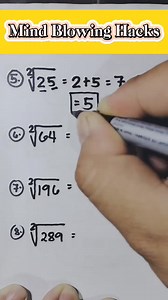 Mind Blowing Hacks
5. ²√25 = 2+5 = 7
= 5
6. ²√64 =
7. ²√196 =
8. ²√289 =